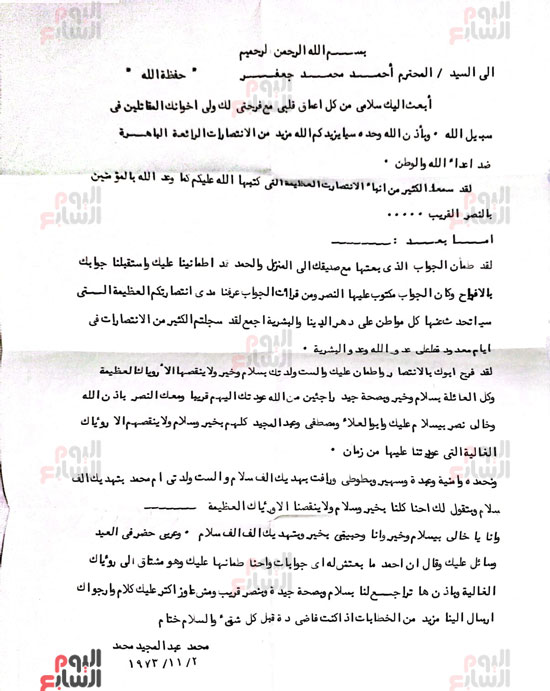 بسم الله الرحمن الرحيم
الى السيد / المحترم أحمد محمد جعفر " حفظة الله "
أبعث اليك سلامى من كل اعماق قلبى مع فرحتى لك ولى اخوانك المقاتلين فى
سبيل الله ٠ وبأذن الله وحده سيايزيدكم الله مزيد من الانتصارات الرائعة الباهرة
ضد اعداء الله والوطن ٠
لقد سمعنا الكثير من انباء الانتصارت العظيمة التى كتبها الله عليكم كما وعد الله بالمؤمنين
بالنصر القريب ٠٠٠٠٠
امـا بعـد : ــــــــ
لقد طمأن الجواب الذى بعتها مع صديقك الى المنزل والحمد قد اطمانينا عليك واستقبلنا جوابك
بالافراح وكان الجواب مكتوب عليها النصر ومن قرائات الجواب عرفنا مدى انتصارتكم العظيمة الـتى
سياتحد عنها كل مواطن على دهر الدينا والبشرية اجمع لقد سجلتم الكثير من الانتصارات فى
ايام معدود قلعلى عدو الله وعدو البشرية ٠
لقد فرح ابوك بالانتصار واطمان عليك والست ولدتك بسلام وخير ولا ينقصها الا رؤياك العظيمة
وكل العائلة بسلام وخير وبصحة جيد راجئين من الله عودتك اليهم قريبا ومعك النصر باذن الله
وخالى نصر بيسلام عليك وابو العلاء ومصطفى وعبد المجيد كلهم بخير وسلام ولا ينقصهم الا رؤياك
الغالية التى عودتنا عليها من زمان ٠
ونحمده وامنية وعيدة وسهير وبطوطى ورافت بيهديك الف سلام والست ولدتى ام محمد بتهديك الف
سلام وبتقول لك احنا كلنا بخير وسلام ولا ينقصنا الا رؤياك العظيمة ــــــــ
وانا يا خالى بيسلام وخير وانا وحبيبتى بخير وبتهديك الف الف سلام ٠ وعربى حضر فى العيد
وسائل عليك وقال ان احمد ما بعتش له اى جوابات واحنا طمانها عليك وهو مشتاق الى رؤياك
الغالية وباذنها تراجع لنا بسلام وبصحة جيدة وبنصر قريب ومش عاوز اكثر عليك كلام وارجواك
ارسال الينا مزيد من الخطابات اذا كنت فاضى دة قبل كل شئ والسلام ختام
محمد عبد المجيد محمد
١٩٧٣/١١/٢
اليوم السابع